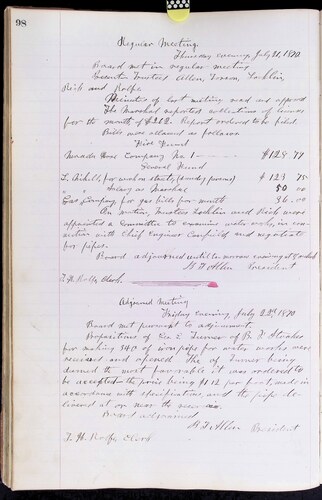 98
Regular Meeting
Thursday evening, July 21, 1870
Board met in regular meeting
Present Trustees Allen,
Rick and Rolfe.
Minutes of last meeting read and approved
The Marshal reported collections of licenses
for the month of $
Report ordered to be filed.
Bills were allowed as follows
Fire Fund
Hose Company No. 1 $128 77
General Fund
for work on streets, (sundry persons) $123 75
" " Salary as Marshal 50 00
Gas Company for gas bills for month 36 00
On motion, Trustees and Rick were
appointed a Committee to examine water works, in con
nection with Chief Engineer Canfield and negotiate
for pipes.
Board adjourned until to-morrow evening at
Allen President
Rolfe Clerk
Adjourned Meeting
Friday evening, July 22d 1870
Board met pursuant to adjournment.
Propositions of Geo E Turner & B F
for making 340 of iron pipe for water works, were
received and opened. The of Turner being
deemed the most favorable it was ordered to
be accepted the price being $1.12 per foot, made in
accordance with specifications, and the pipe de
livered at or near the
Board adjourned
Allen President
Rolfe Clerk